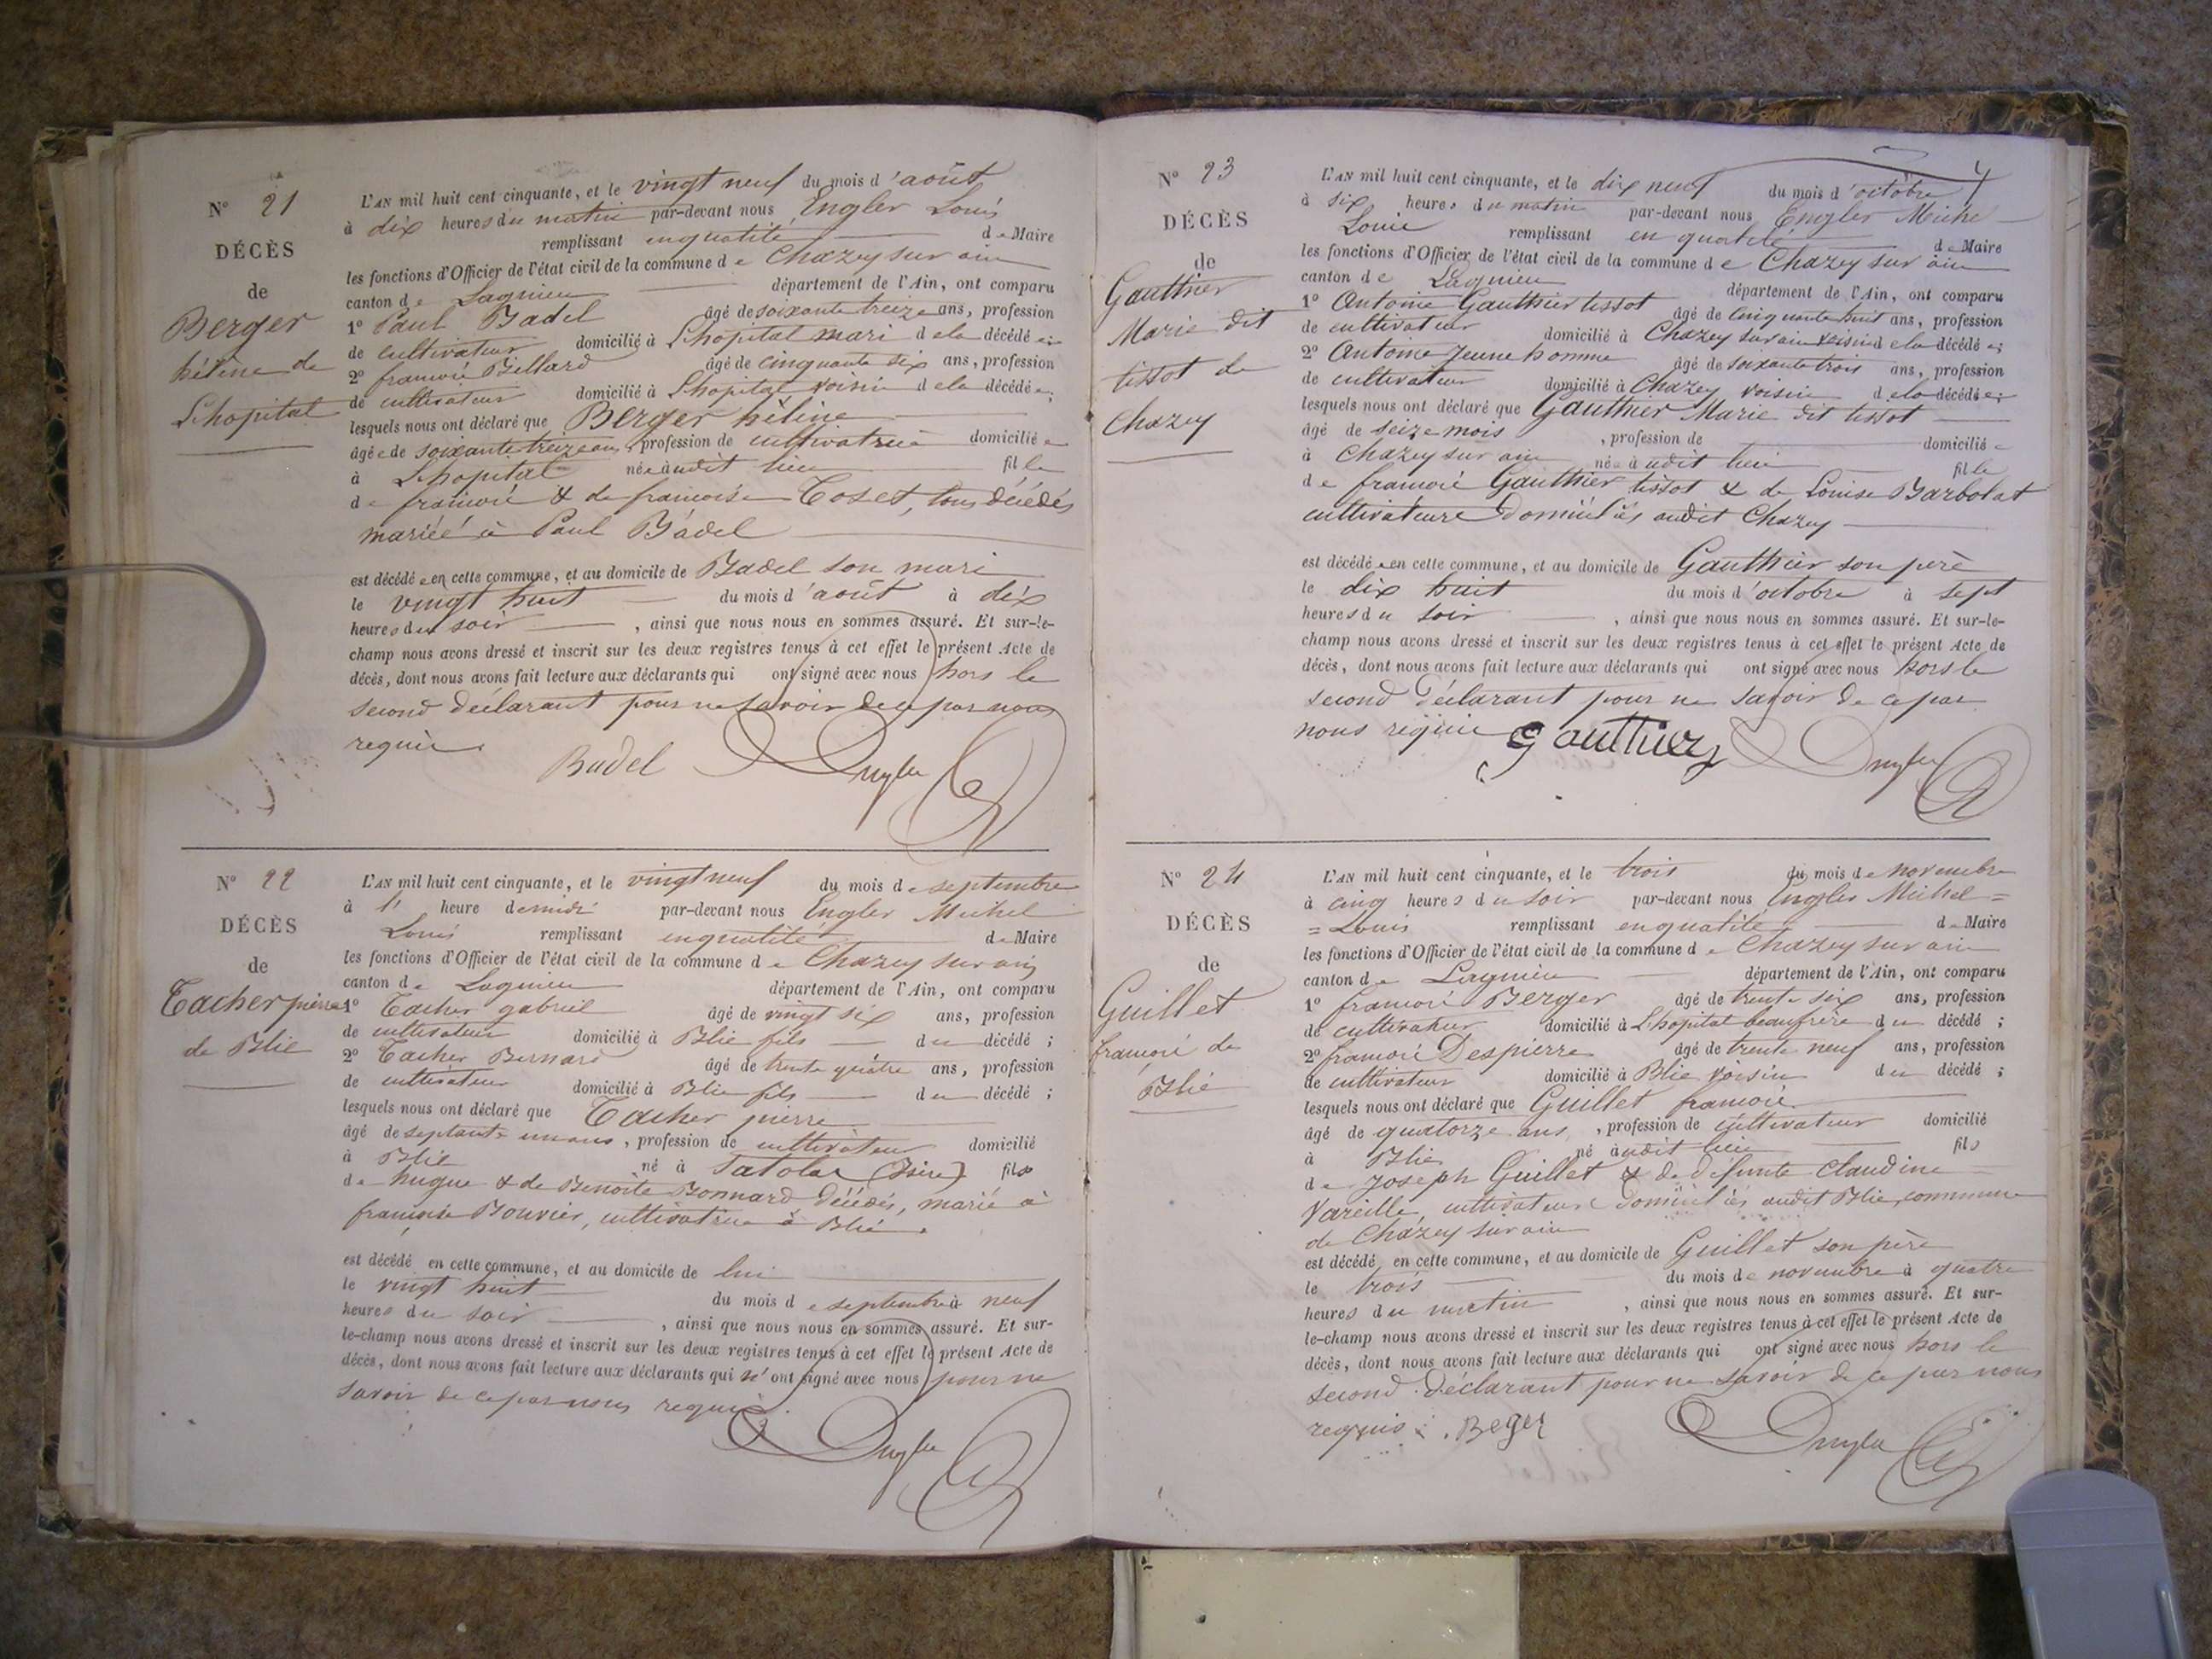 N° 21
DÉCÈS
de
Berger
hélène de
Lhopital
L'AN mil huit cent cinquante, et le vingt neuf du mois d'août
à dix heures du matin par-devant nous Engler Louis
remplissant en qualité de Maire
les fonctions d'Officier de l'état civil de la commune de Chazey sur ain
canton de Lagnieu département de l'Ain, ont comparu
1° Paul Badel âgé de soixante treize ans, profession
de cultivateur domicilié à Lhopital mari de la décédée;
2° francois Billard âgé de cinquante six ans, profession
de cultivateur domicilié à Lhopital voisin de la décédée;
lesquels nous ont déclaré que Berger hélène
âgée de soixante treize ans, profession de cultivatrice domiciliée
à Lhopital née audit lieu fille
de francois & de francoise Coset, tous décédés
mariée à Paul Badel
est décédée en cette commune, et au domicile de Badel son mari
le vingt huit du mois d'août à dix
heures du soir, ainsi que nous nous en sommes assuré. Et sur-le-
champ nous avons dressé et inscrit sur les deux registres tenus à cet effet le présent Acte de
décès, dont nous avons fait lecture aux déclarants qui ont signé avec nous hors le
second déclarant pour ne savoir de ce par nous
requis
Badel Engler
N° 22
DÉCÈS
de
Tacher pierre
de Blie
L'AN mil huit cent cinquante, et le vingt neuf du mois de septembre
à 1' heure de midi par-devant nous Engler Michel
Louis remplissant en qualité de Maire
les fonctions d'Officier de l'état civil de la commune de Chazey sur ain
canton de Lagnieu département de l'Ain, ont comparu
1° Tacher gabriel âgé de vingt six ans, profession
de cultivateur domicilié à Blie fils du décédé;
2° Tacher Bernard âgé de trente quatre ans, profession
de cultivateur domicilié à Blie fils du décédé;
lesquels nous ont déclaré que Tacher pierre
âgé de septante un ans, profession de cultivateur domicilié
à Blie né à Satolas (Isère) fils
de hugue & de Benoite Bonnard décédés, marié à
françoise Bouvier, cultivatrice à Blie.
est décédé en cette commune, et au domicile de lui
le vingt huit du mois de septembre à neuf
heures du soir, ainsi que nous nous en sommes assuré. Et sur-
le-champ nous avons dressé et inscrit sur les deux registres tenus à cet effet le présent Acte de
décès, dont nous avons fait lecture aux déclarants qui n'ont signé avec nous pour ne
savoir de ce par nous requis
Engler
N° 23
DÉCÈS
de
Gauthier
Marie dit
tissot de
Chazey
L'AN mil huit cent cinquante, et le dix neuf du mois d'octobre
à six heures du matin par-devant nous Engler Michel
Louis remplissant en qualité de Maire
les fonctions d'Officier de l'état civil de la commune de Chazey sur ain
canton de Lagnieu département de l'Ain, ont comparu
1° Antoine Gauthier tissot âgé de cinquante huit ans, profession
de cultivateur domicilié à Chazey sur ain voisin de la décédée;
2° Antoine Jeune homme âgé de soixante trois ans, profession
de cultivateur domicilié à Chazey voisin de la décédée;
lesquels nous ont déclaré que Gauthier Marie dit tissot
âgé de seize mois, profession de domiciliée
à Chazey sur ain née audit lieu fille
de francois Gauthier tissot & de Louise Barbolat
cultivateurs domiciliés audit Chazey
est décédée en cette commune, et au domicile de Gauthier son père
le dix huit du mois d'octobre à sept
heures du soir, ainsi que nous nous en sommes assuré. Et sur-le-
champ nous avons dressé et inscrit sur les deux registres tenus à cet effet le présent Acte de
décès, dont nous avons fait lecture aux déclarants qui ont signé avec nous hors le
second déclarant pour ne savoir de ce par
nous requis Gauthier Engler
N° 24
DÉCÈS
de
Guillet
francois de
Blie
L'AN mil huit cent cinquante, et le trois du mois de novembre
à cinq heures du soir par-devant nous Engler Michel =
= Louis remplissant en qualité de Maire
les fonctions d'Officier de l'état civil de la commune de Chazey sur ain
canton de Lagnieu département de l'Ain, ont comparu
1° francois Berger âgé de trente six ans, profession
de cultivateur domicilié à Lhopital beaufrère du décédé;
2° francois Despierre âgé de trente neuf ans, profession
de cultivateur domicilié à Blie voisin du décédé;
lesquels nous ont déclaré que Guillet francois
âgé de quatorze ans, profession de cultivateur domicilié
à Blie né audit lieu fils
de Joseph Guillet & de défunte Claudine
Vareille, cultivateurs domiciliés audit Blie, commune
de Chazey sur ain
est décédé en cette commune, et au domicile de Guillet son père
le trois du mois de novembre à quatre
heures du matin, ainsi que nous nous en sommes assuré. Et sur-
le-champ nous avons dressé et inscrit sur les deux registres tenus à cet effet le présent Acte de
décès, dont nous avons fait lecture aux déclarants qui ont signé avec nous hors le
second déclarant pour ne savoir de ce par nous
requis. Beger Engler